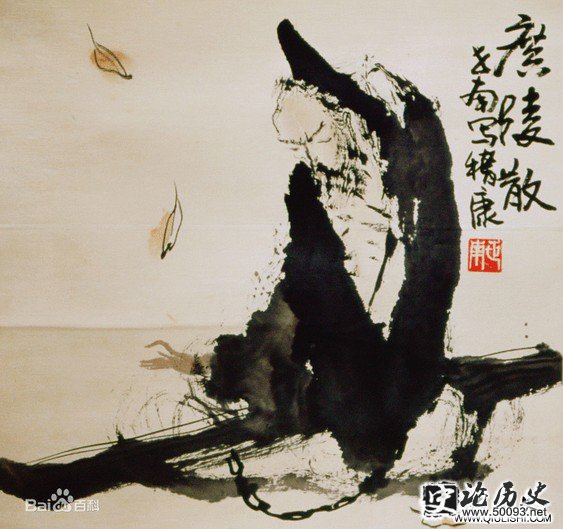 廣陵散
世南写稽康
Bai du 百科
论历史
www.50093.net